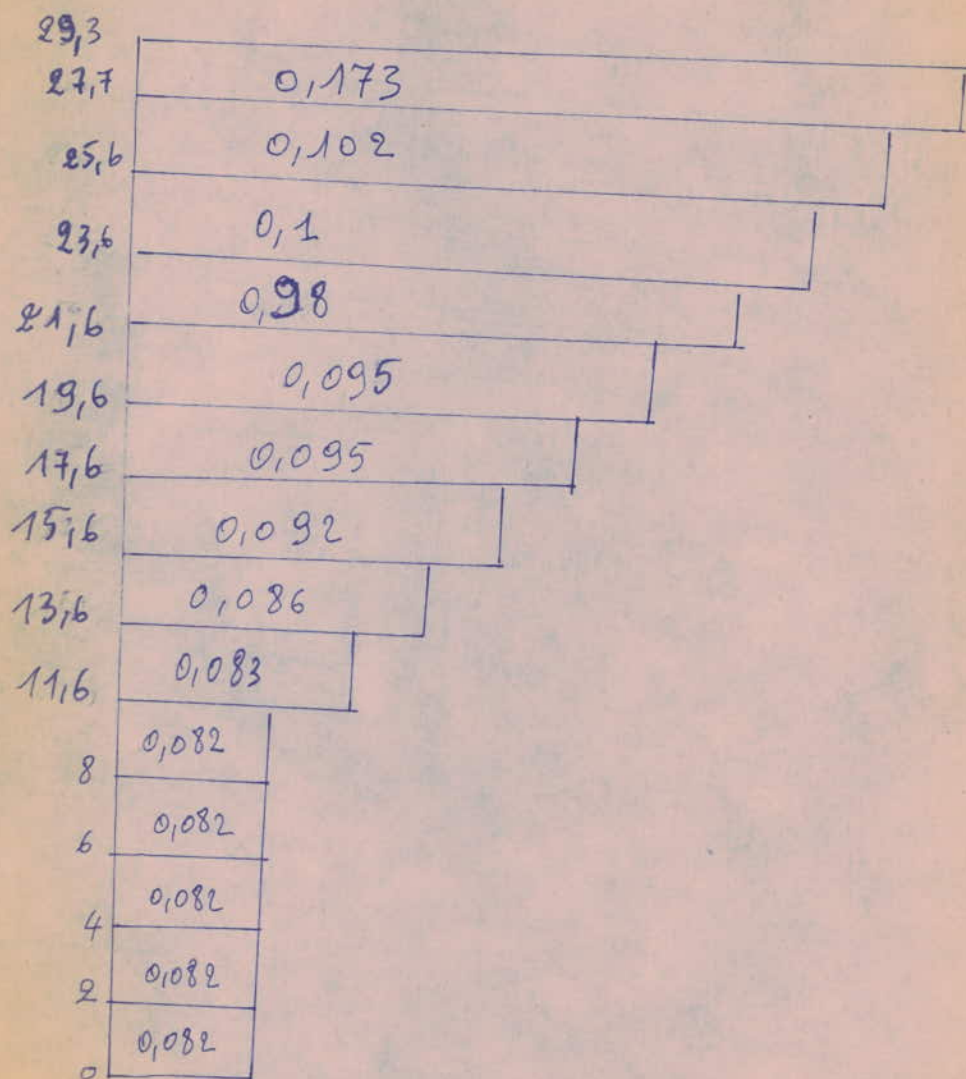 29,3
27,7 0,173
25,6 0,102
23,6 0,1
21,6 0,98
19,6 0,095
17,6 0,095
15,6 0,092
13,6 0,086
11,6 0,083
0,082
8
0,082
6
0,082
4
0,082
2
0,082
0